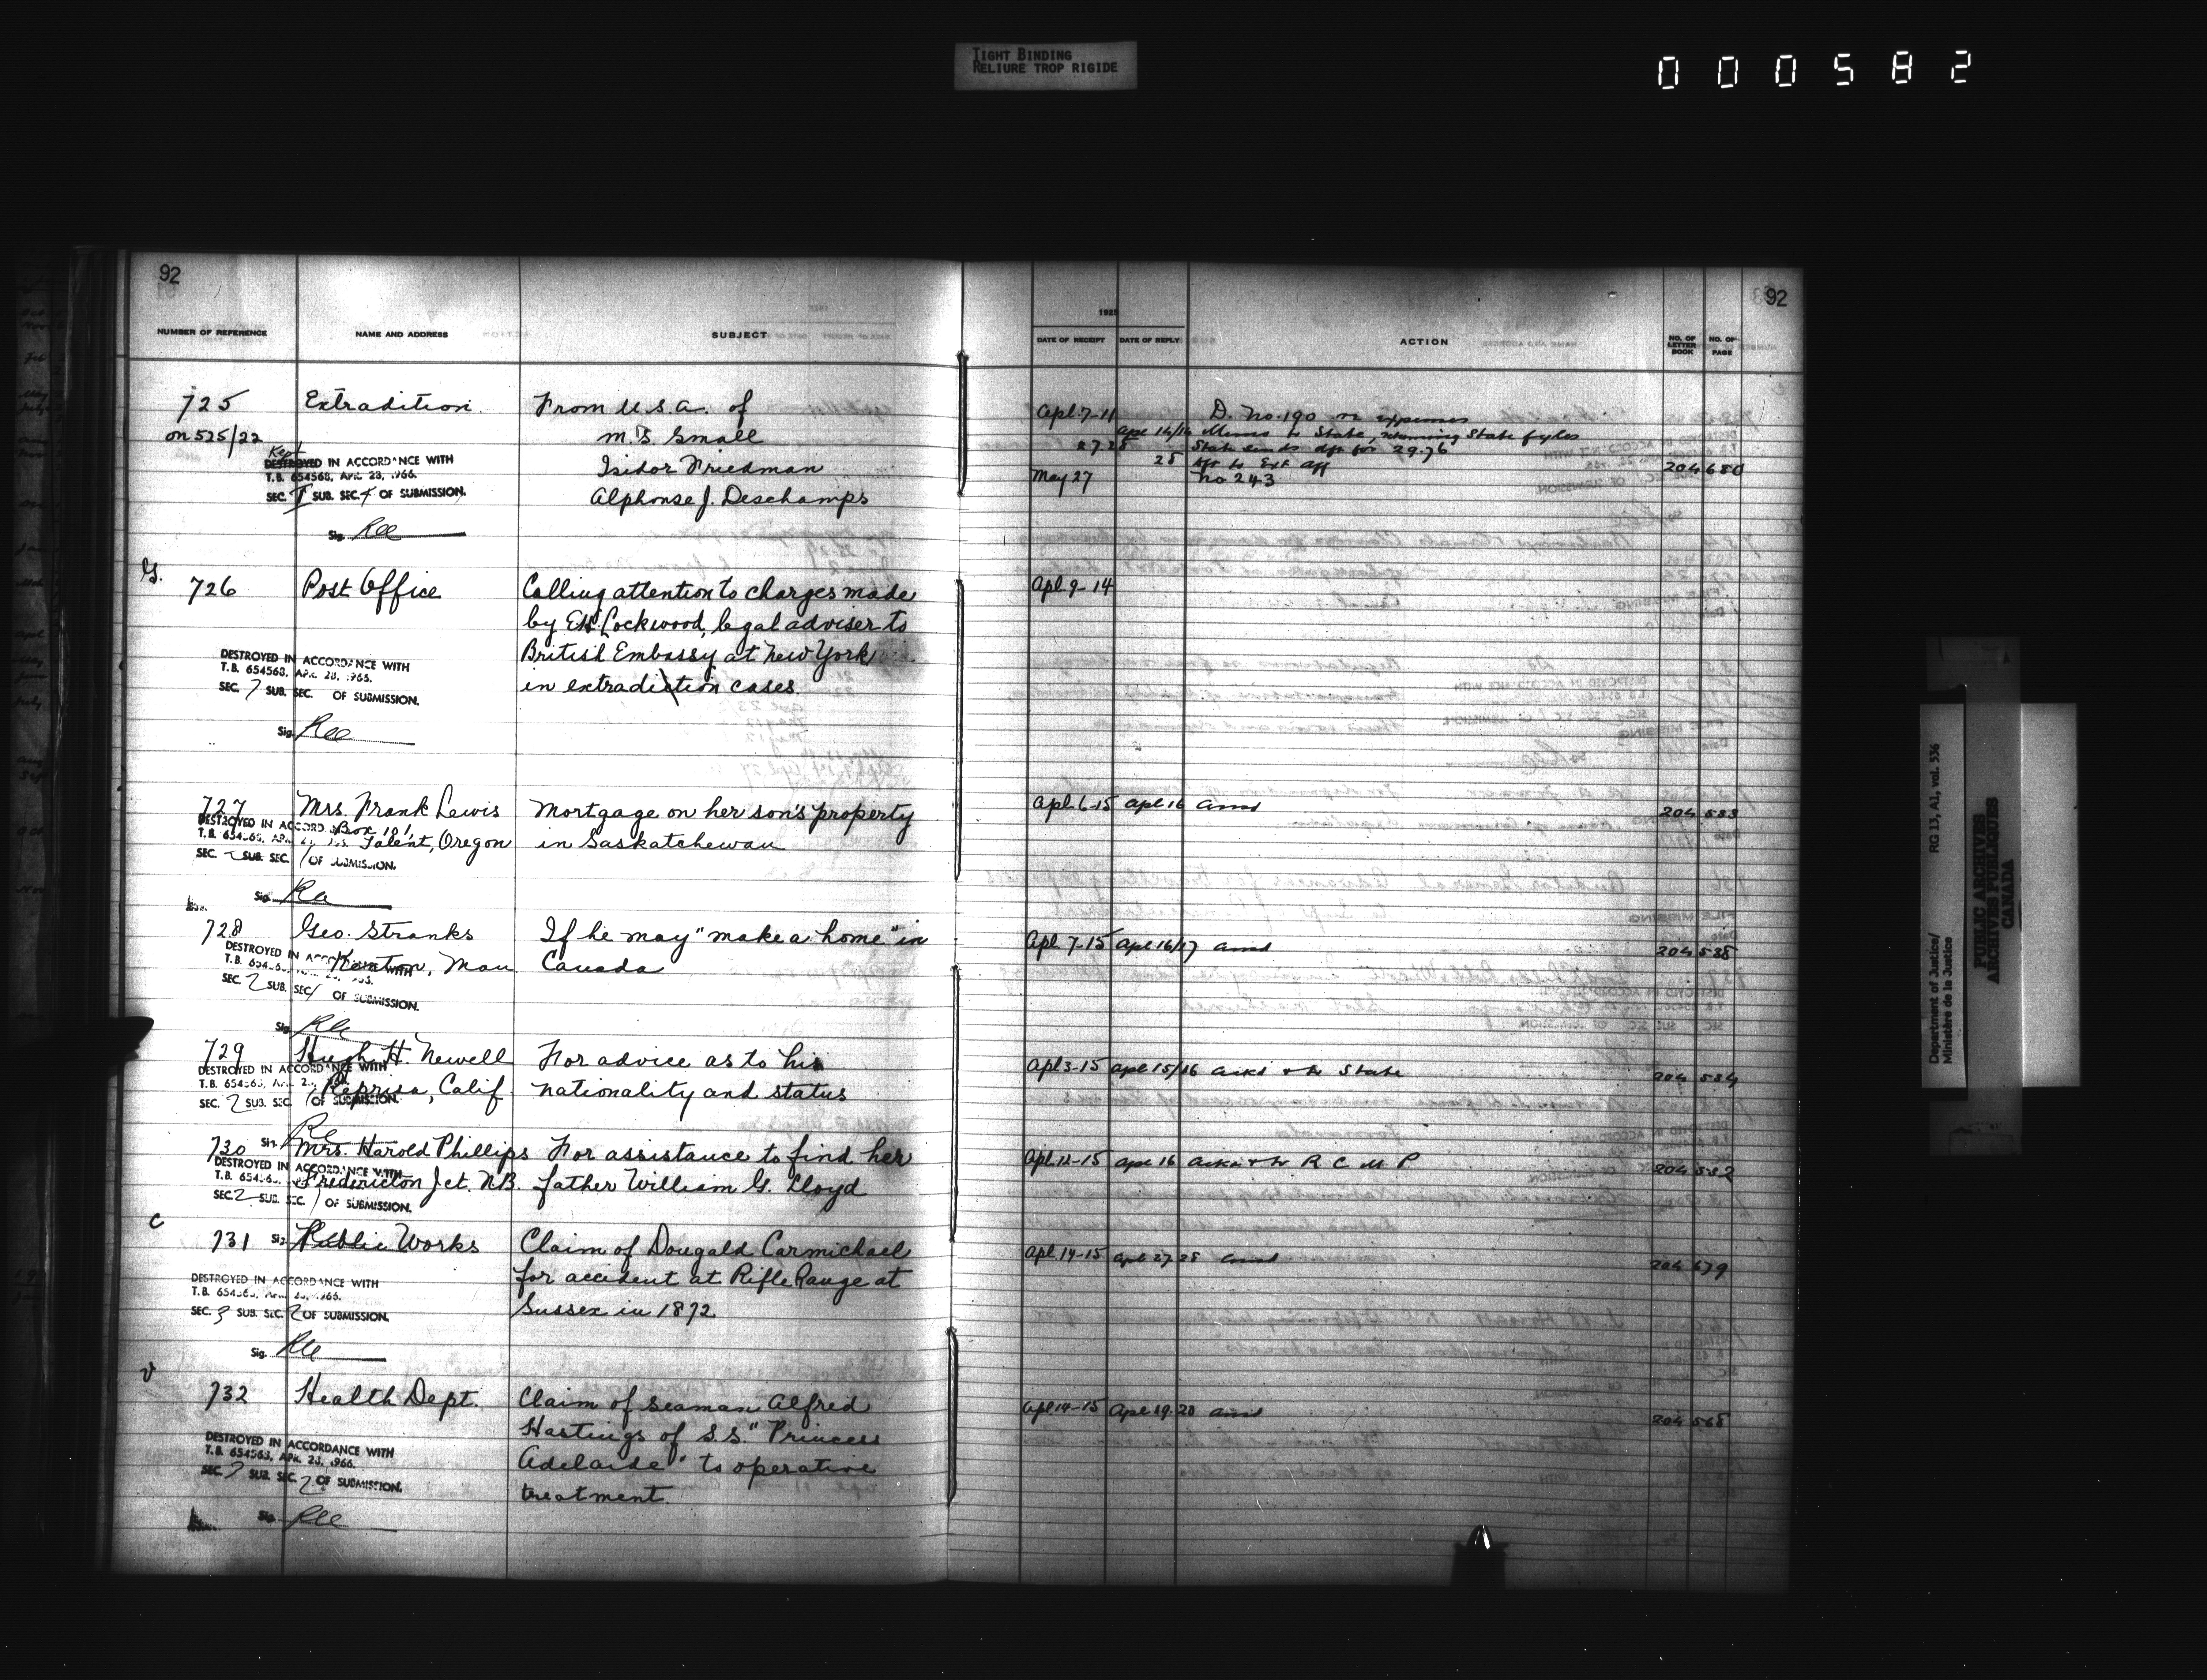 TIGHT BINDING
RELIURE TROP RIGIDE
000582
92
NUMBER OF REFERENCE NAME AND ADDRESS SUBJECT
1925
DATE OF RECEIPT DATE OF REPLY ACTION NO. OF LETTER BOOK NO. OF PAGE
92
725 Extradition. From U.S.A. of
on 525/22 M.S. Small
Kept
DESTROYED IN ACCORDANCE WITH
T.B. 654568, APR. 28, 1966.
SEC. SUB. SEC. OF SUBMISSION.
Isidor Friedman
Alphonse J. Deschamps
Sig.
Apl. 7-11 D. No. 190 re expenses
Apl 14/16 Memo to State, returning State fyles
27.28 State sends dft for 29.76
28 dft to Ext Aff 204 680
May 27 No 243
726 Post Office Calling attention to charges made
by E.H. Lockwood, legal adviser to
British Embassy at New York
in extradiction cases.
DESTROYED IN ACCORDANCE WITH
T.B. 654568, APR. 28, 1966.
SEC. 7 SUB. SEC. OF SUBMISSION.
Sig.
Apl. 9-14
727 Mrs. Frank Lewis Mortgage on her son's property
Box 181
Talent, Oregon in Saskatchewan
DESTROYED IN ACCORD
SEC. SUB. SEC. 1 OF SUBMISSION.
Sig.
Apl. 6-15 Apl 16 Ansd 204 533
728 Geo. Stranks If he may "make a home" in
Kenton, Man Canada
DESTROYED IN ACCORDANCE WITH
SEC. 2 SUB. SEC. 1 OF SUBMISSION.
Sig.
Apl. 7-15 Apl 16/17 Ansd 204 538
729 Hugh H. Newell For advice as to his
Represa, Calif. nationality and status
DESTROYED IN ACCORDANCE WITH
SEC. 2 SUB. SEC. 1 OF SUBMISSION.
Apl 3-15 Apl 15/16 Ackd & to State 204 534
730 Mrs. Harold Phillips For assistance to find her
Fredericton Jct. N.B. father William G. Lloyd
DESTROYED IN ACCORDANCE WITH
SEC. 2 SUB. SEC. 1 OF SUBMISSION.
Apl 11-15 Apl 16 Ackd & to R C M P 204 532
C
731 Public Works Claim of Dougald Carmichael
for accident at Rifle Range at
Sussex in 1872
DESTROYED IN ACCORDANCE WITH
SEC. 3 SUB. SEC. 2 OF SUBMISSION.
Sig.
Apl. 14-15 Apl 27.28 Ansd 204 679
V
732 Health Dept. Claim of seaman Alfred
Hastings of S.S. "Princess
Adelaide" to operative
treatment.
DESTROYED IN ACCORDANCE WITH
T.B. 654568, APR. 28, 1966.
SEC. SUB. SEC. 2 OF SUBMISSION.
Sig.
Apl 14-15 Apl 19.20 Ansd 204 568
Department of Justice/ RG 13, A1, vol. 536
Ministère de la Justice
PUBLIC ARCHIVES
ARCHIVES PUBLIQUES
CANADA